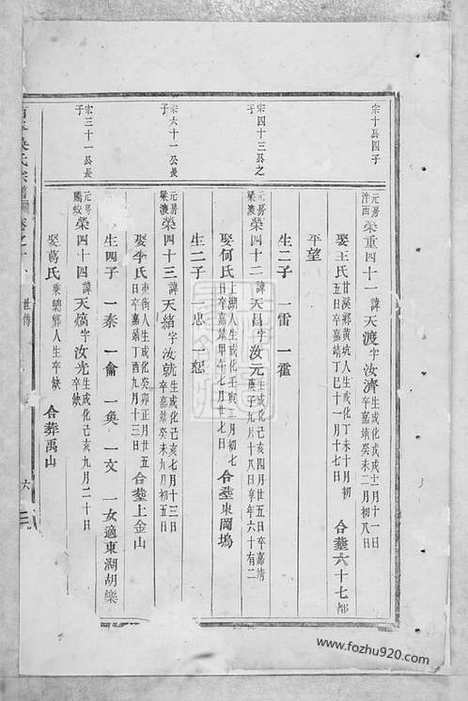 宗十長四子
元房
榮重四十一諱天渡字汝濟生成化戊戌十二月十一日
卒嘉靖癸未二月初八
娶王氏甘溪郭黄坑人生成化丁未十月初
五日卒嘉靖丁巳十一月十七
合葬六十七都
平望
生二子 一雷 一霍
宗四十三長之
元房
梁渡
榮四十二諱天昌字汝元生成化己亥四月廿五日卒嘉靖
庚子九月十八日享年六十有二
娶何氏上湖人生成化壬寅三月初七
日卒嘉靖甲午七月廿七
合葬東岡塢
生二子 一忠 一恕
宗六十一公長
子
元房
梁渡
榮四十三諱天緒字汝就生成化己亥七月十三日
娶李氏東街人生成化癸卯正月廿五
日卒嘉靖丁酉九月十三日
合葬上金山
生四子 一泰 一侖 一奐 一文 一女適東湖胡樂
宗三十一公長
子
元房
榮四十四諱天熇字汝光生成化己亥九月二十日
卒缺
娶葛氏人生卒缺
合葬禹山
世傳
六
www.fozhu920.com